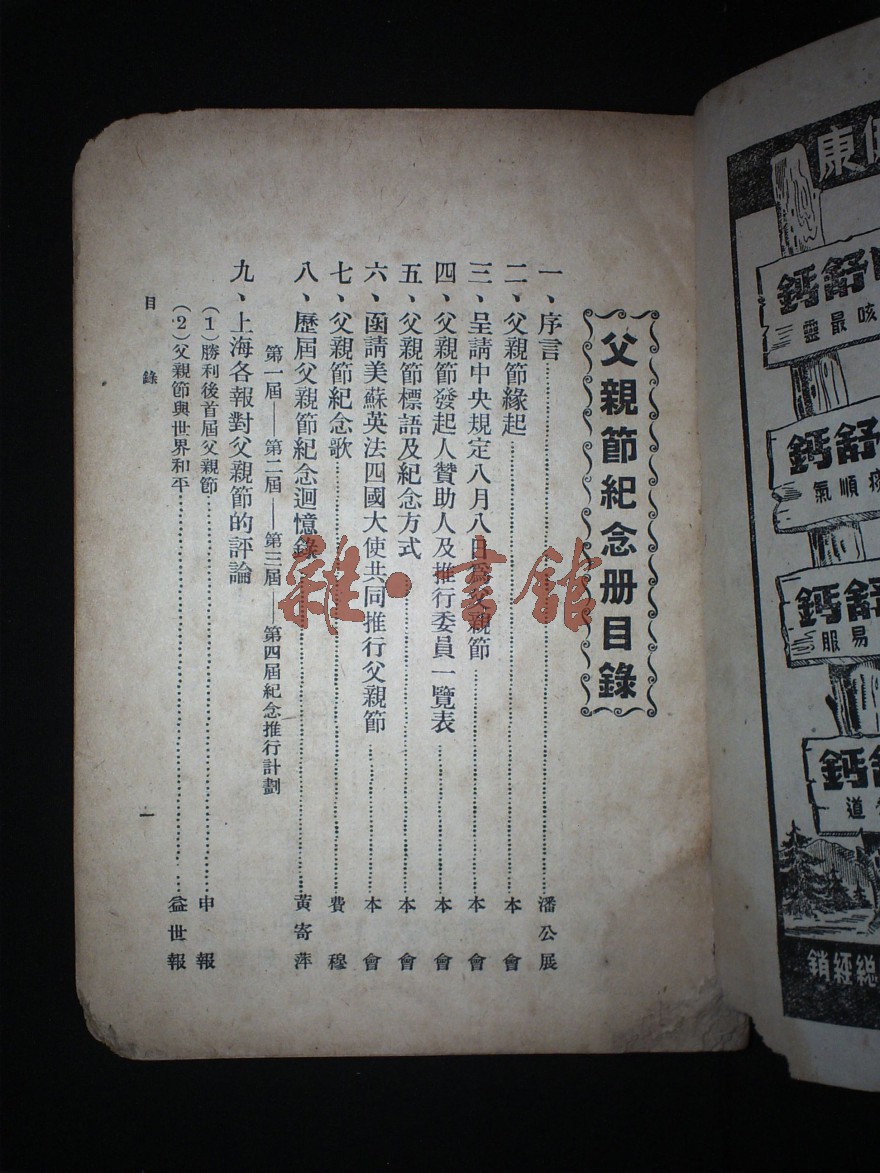 父親節紀念册目錄
一、序言……潘公展
二、父親節緣起……本會
三、呈請中央規定八月八日為父親節……本會
四、父親節發起人贊助人及推行委員一覽表……本會
五、父親節標語及紀念方式……本會
六、函請美蘇英法四國大使共同推行父親節……本會
七、父親節紀念歌……費穆
八、歷屆父親節紀念迴憶錄……黃寄萍
第一屆——第二屆——第三屆——第四屆紀念推行計劃
九、上海各報對父親節的評論
（1）勝利後首屆父親節……申報
（2）父親節與世界和平……益世報
目錄
一
雜·書館
康健
鈣舒
三靈最咳
鈣舒
氣順痰
鈣舒
服易
鈣舒
道
銷經總